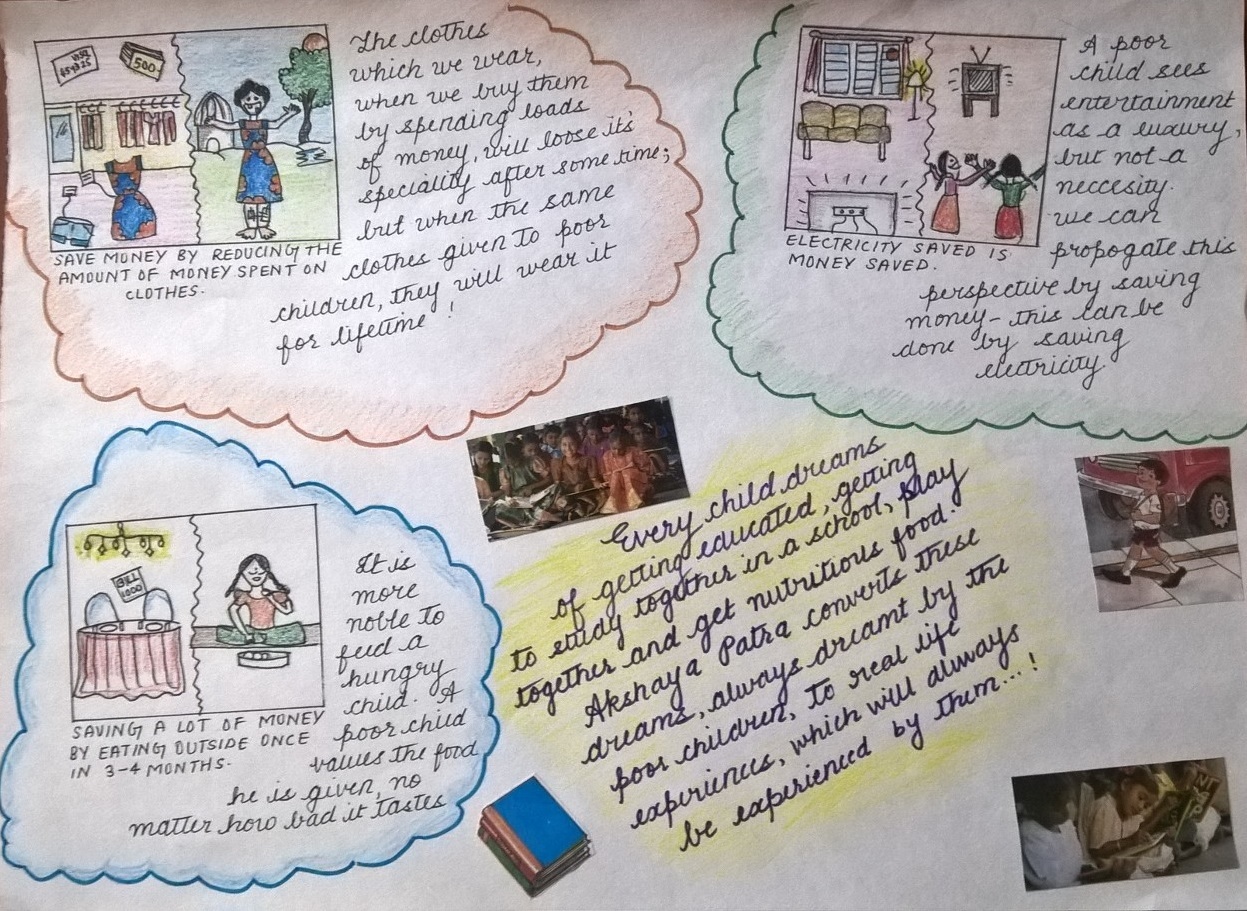 The clothes
which we wear,
when we buy them
by spending loads
of money, will loose it's
speciality after some time;
but when the same
clothes given to poor
children, they will wear it
for lifetime !
500
SAVE MONEY BY REDUCING THE
AMOUNT OF MONEY SPENT ON
CLOTHES.
A poor
child sees
entertainment
as a luxury,
but not a
neccesity.
we can
propogate this
perspective by saving
money - this can be
done by saving
electricity.
ELECTRICITY SAVED IS
MONEY SAVED.
BILL
1000
SAVING A LOT OF MONEY
BY EATING OUTSIDE ONCE
IN 3-4 MONTHS.
It is
more
noble to
feed a
hungry
child. A
poor child
values the food
he is given, no
matter how bad it tastes
Every child dreams
of getting educated, getting
to study together in a school, play
together and get nutritious food.
Akshaya Patra converts these
dreams, always dreamt by the
poor children, to real life
experiences, which will always
be experienced by them...!